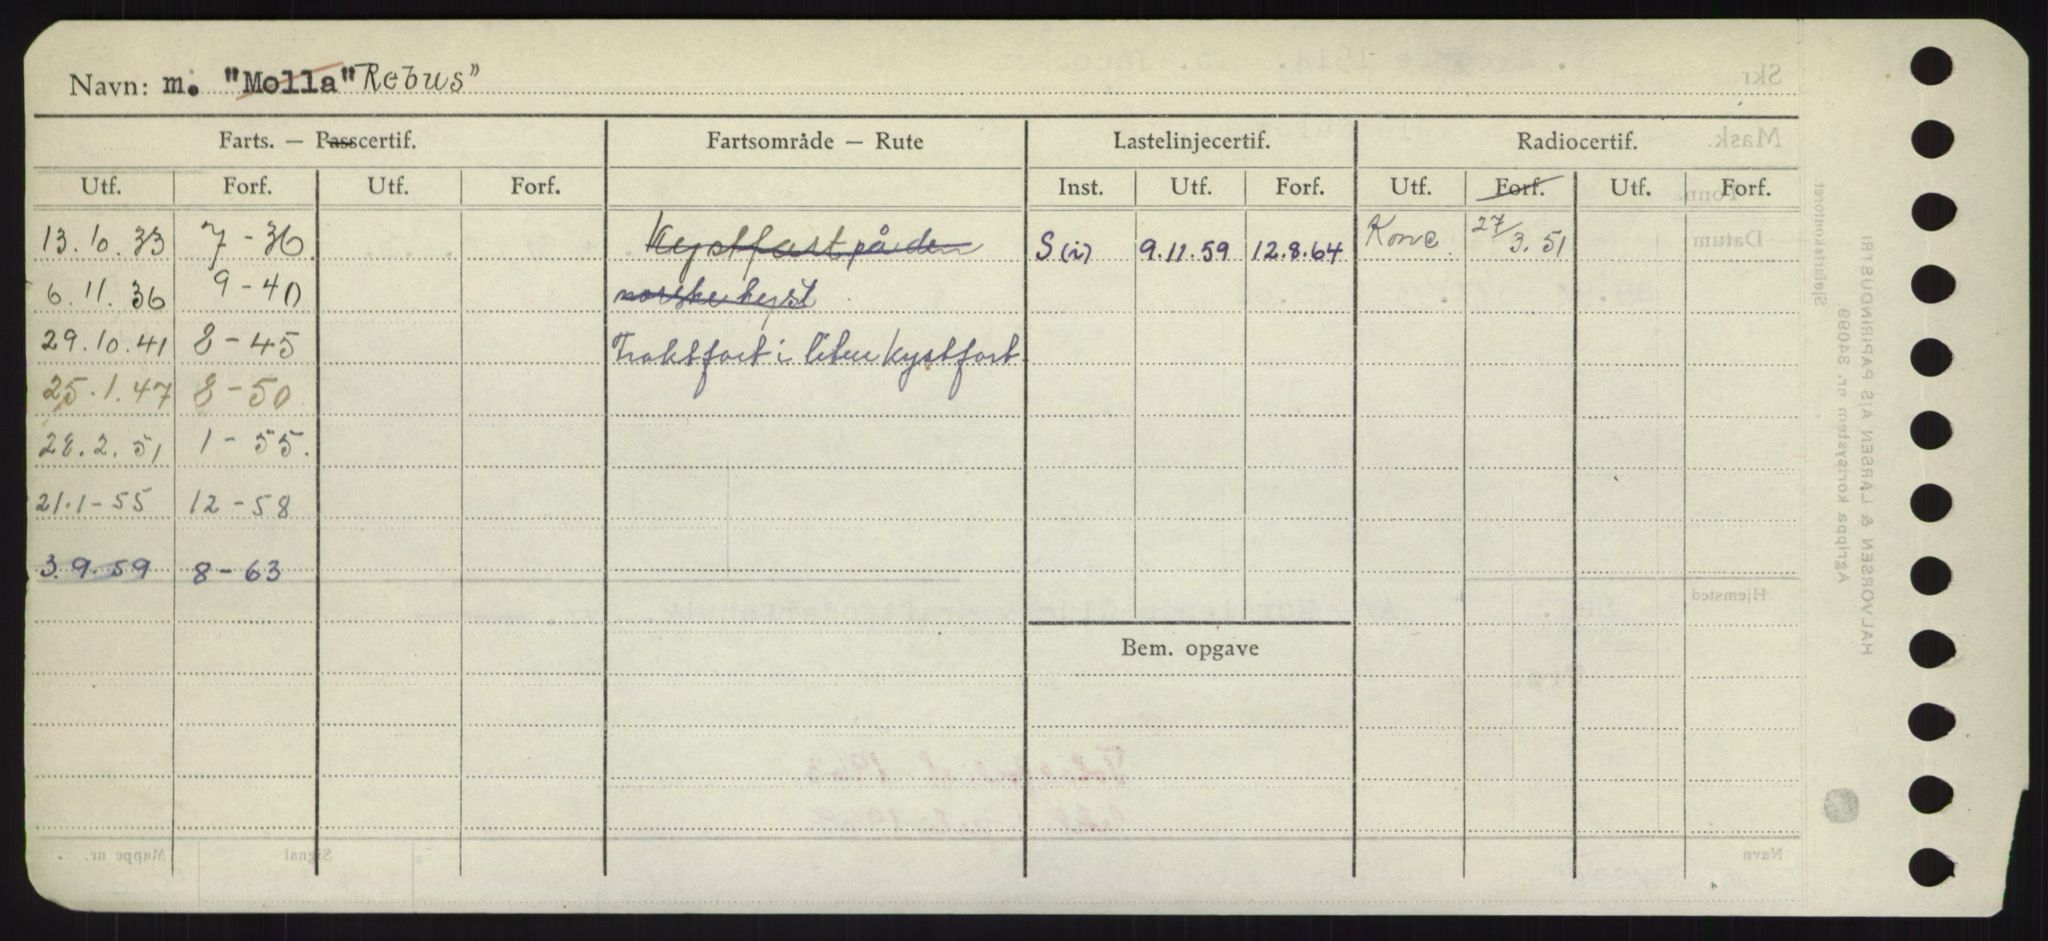 Navn: m. "Molla" Rebus"
Farts. — Passcertif. Fartsområde — Rute Lastelinjecertif. Radiocertif.
Utf. Forf. Utf. Forf. Inst. Utf. Forf. Utf. Forf. Utf. Forf.
13.10.33 7-36 Kystfart på den S (i) 9.11.59 12.8.64 Konc. 27/3.51
6.11.36 9-40 norske kyst
29.10.41 8-45 Fraktfart i liten kystfart
25.1.47 8-50
28.2.51 1-55.
21.1-55 12-58
3.9.59 8-63
Bem. opgave
Skr.
Mask.
Tonna
Datum
Sjefsinspektoratet
Hjemsted
Agrippa kortsystem nr. 34099
HALVORSEN & LARSEN A/S PAPIRINDUSTRI
Navn
Signal
Mappe nr.